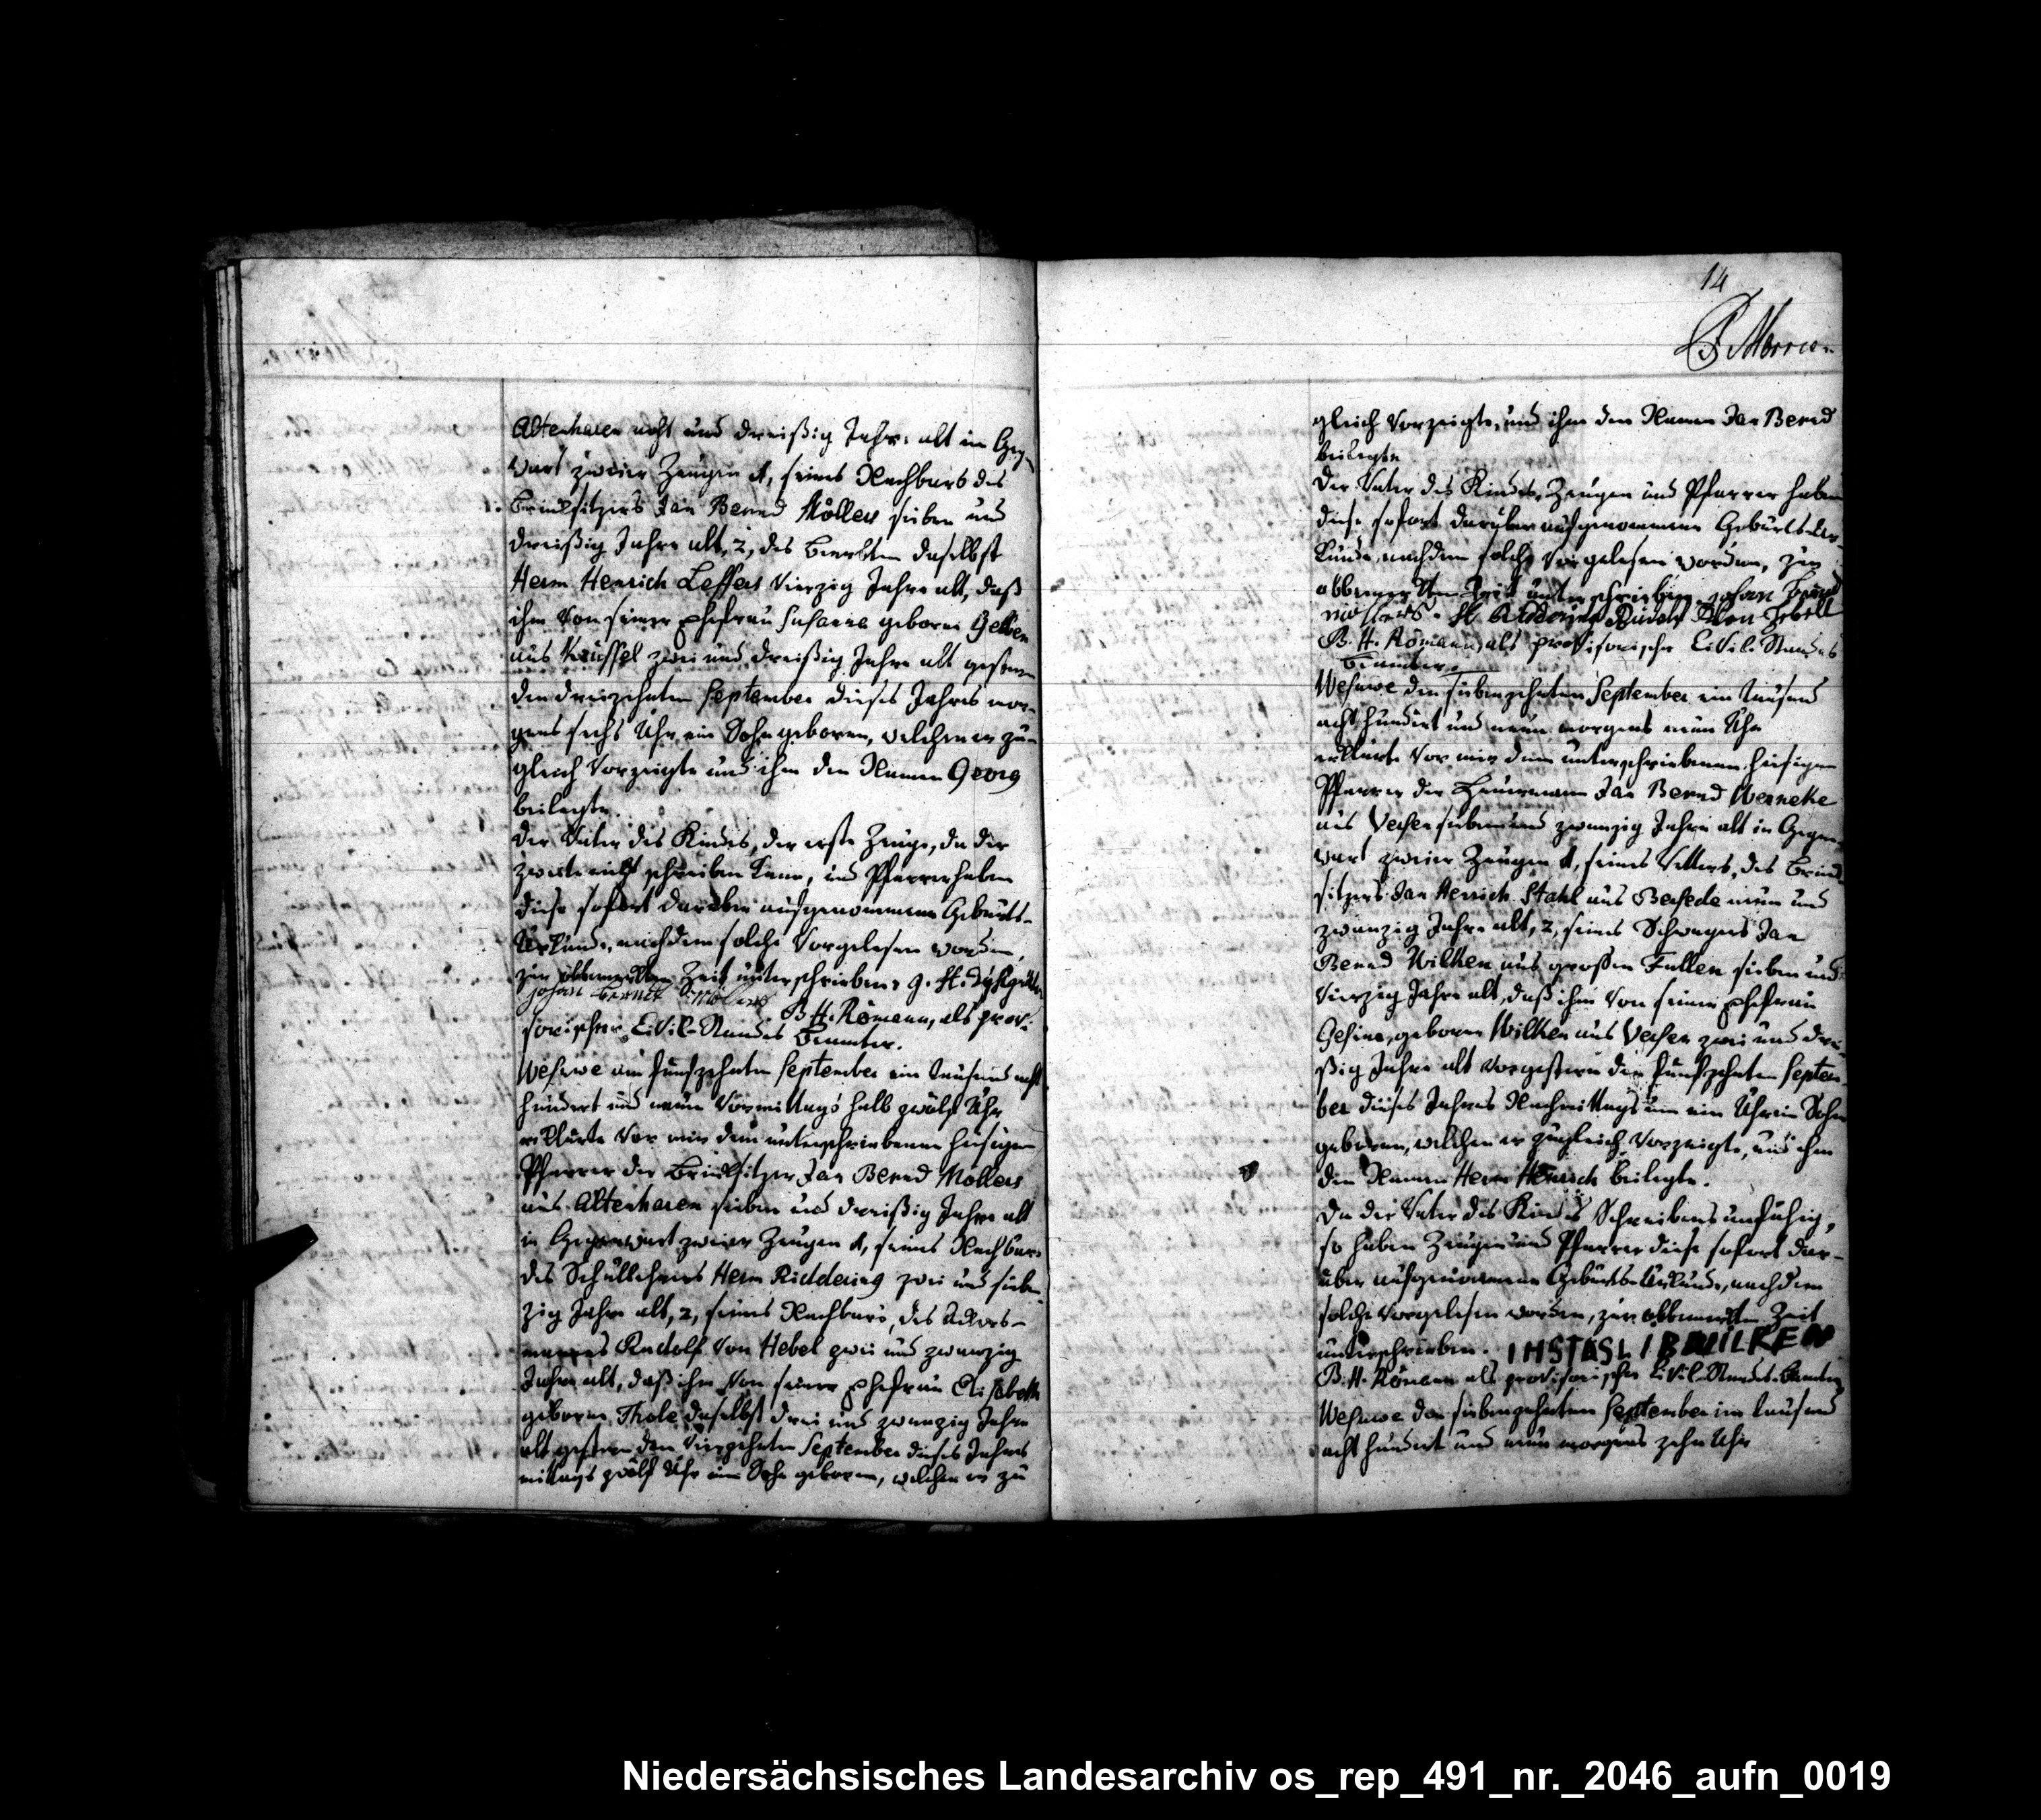 Altenharen acht und dreißig Jahre alt in Gegen
wart zweier Zeugen 1, seines Nachbars des
Brinksitzers Jan Bernd Möllers sieben und
dreißig Jahre alt, 2, des Beerbten daselbst
Herm Henrich Leffers vierzig Jahre alt, daß
ihm von seiner Ehefrau Susanna geborne
aus zwei und dreißig Jahre alt gestern
den dreizehnten September dieses Jahres mor-
gens sechs Uhr ein Sohn geboren, welchen er zu-
gleich vorzeigte und ihm den Namen Georg
beilegte.
Der Vater des Kindes, der erste Zeuge, da der
zweite nicht schreiben kann, und Pfarrer haben
diese sofort darüber aufgenommene Geburts-
Urkunde, nachdem solche vorgelesen worden,
zur obbemerkten Zeit unterschrieben. g. H.
johan Bernd Möllers
B. H. Römann, als provi-
sorischer Civil-Standes Beamter.
Wesuwe den funfzehnten September ein tausend acht
hundert und neun Vormittags halb zwölf Uhr
erklärte vor mir dem unterschriebenen hiesigen
Pfarrer der Brinksitzer Jan Bernd Möllers
aus Altenharen sieben und dreißig Jahre alt
in Gegenwart zweier Zeugen 1, seines Nachbars
des Schullehrers Herm Riddering zwei und sieben
zig Jahre alt, 2, seines Nachbars, des Ackers-
mannes Rudolf von Hebel zwei und zwanzig
Jahre alt, daß ihm von seiner Ehefrau Elisabeth
geborne Thole daselbst drei und zwanzig Jahre
alt gestern den vierzehnten September dieses Jahres
mittags zwölf Uhr ein Sohn geboren, welchen er zu
14
gleich vorzeigte, und ihm den Namen Jan Bernd
beilegte
Der Vater des Kindes, Zeugen und Pfarrer haben
diese sofort darüber aufgenommene Geburts-Ur-
kunde, nachdem solche vorgelesen worden, zur
obbemerkten Zeit unterschrieben. johan Bernd
möllers. H Riddering Rudolf
B. H. Römann, als provisorischer Civil-Standes
Beamter.
Wesuwe den siebenzehnten September ein tausend
acht hundert und neun morgens neun Uhr
erklärte vor mir dem unterschriebenen hiesigen
Pfarrer der Heuermann Jan Bernd Werneke
aus Versen sieben und zwanzig Jahre alt in Gegen-
wart zweier Zeugen 1, seines Vetters, des Brink
sitzers Jan Henrich Stahl aus Bersede neun und
zwanzig Jahre alt, 2, seines Schwagers Jan
Bernd Wilken aus großen Fullen sieben und
vierzig Jahre alt, daß ihm von seiner Ehefrau
Gesina, geborne Wilken aus Versen zwei und drei-
ßig Jahre alt vorgestern den funfzehnten Septem-
ber dieses Jahres Nachmittags um ein Uhr ein Sohn
geboren, welchen er zugleich vorzeigte, und ihm
den Namen Herm Henrich beilegte.
Da der Vater des Kindes Schreibens unfähig,
so haben Zeugen und Pfarrer diese sofort dar-
über aufgenommene Geburts-Urkunde, nachdem
solche vorgelesen worden, zur obbemerkten Zeit
unterschrieben. IHSTASL IBWILKEN
B. H. Römann als provisorischer Civil-Standes-Beamter
Wesuwe den siebenzehnten September ein tausend
acht hundert und neun morgens zehn Uhr
Niedersächsisches Landesarchiv os_rep_491_nr._2046_aufn_0019